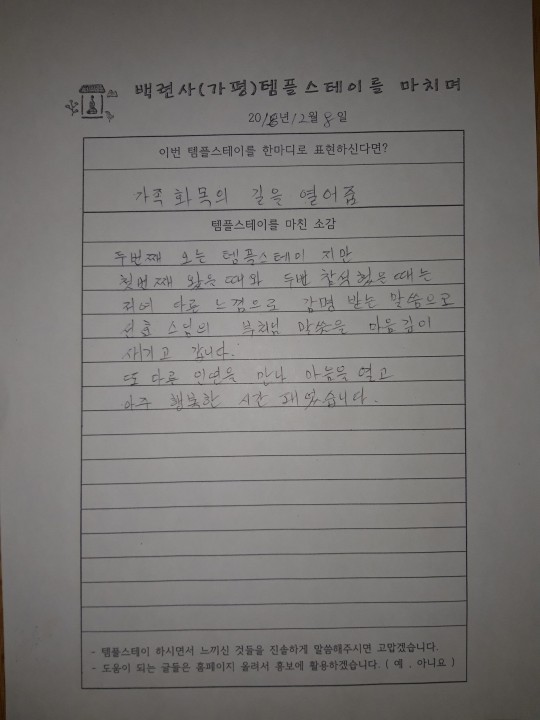 백련사(가평)템플스테이를 마치며
2018년 12월 8일
이번 템플스테이를 한마디로 표현하신다면?
가족 화목의 길을 열어줌
템플스테이를 마친 소감
두번째 오는 템플스테이 지만
첫번째 왔을때와 두번 참석 했을때는
저여 다른 느낌으로 감명 받는 말씀으로
스님의 부처님 말씀을 마음깊이
새기고 갑니다.
또 다른 인연을 만나 마음을 열고
아주 행복한 시간 되었습니다.
- 템플스테이 하시면서 느끼신 것들을 진솔하게 말씀해주시면 고맙겠습니다.
- 도움이 되는 글들은 홈페이지 올려서 홍보에 활용하겠습니다. ( 예 , 아니요 )